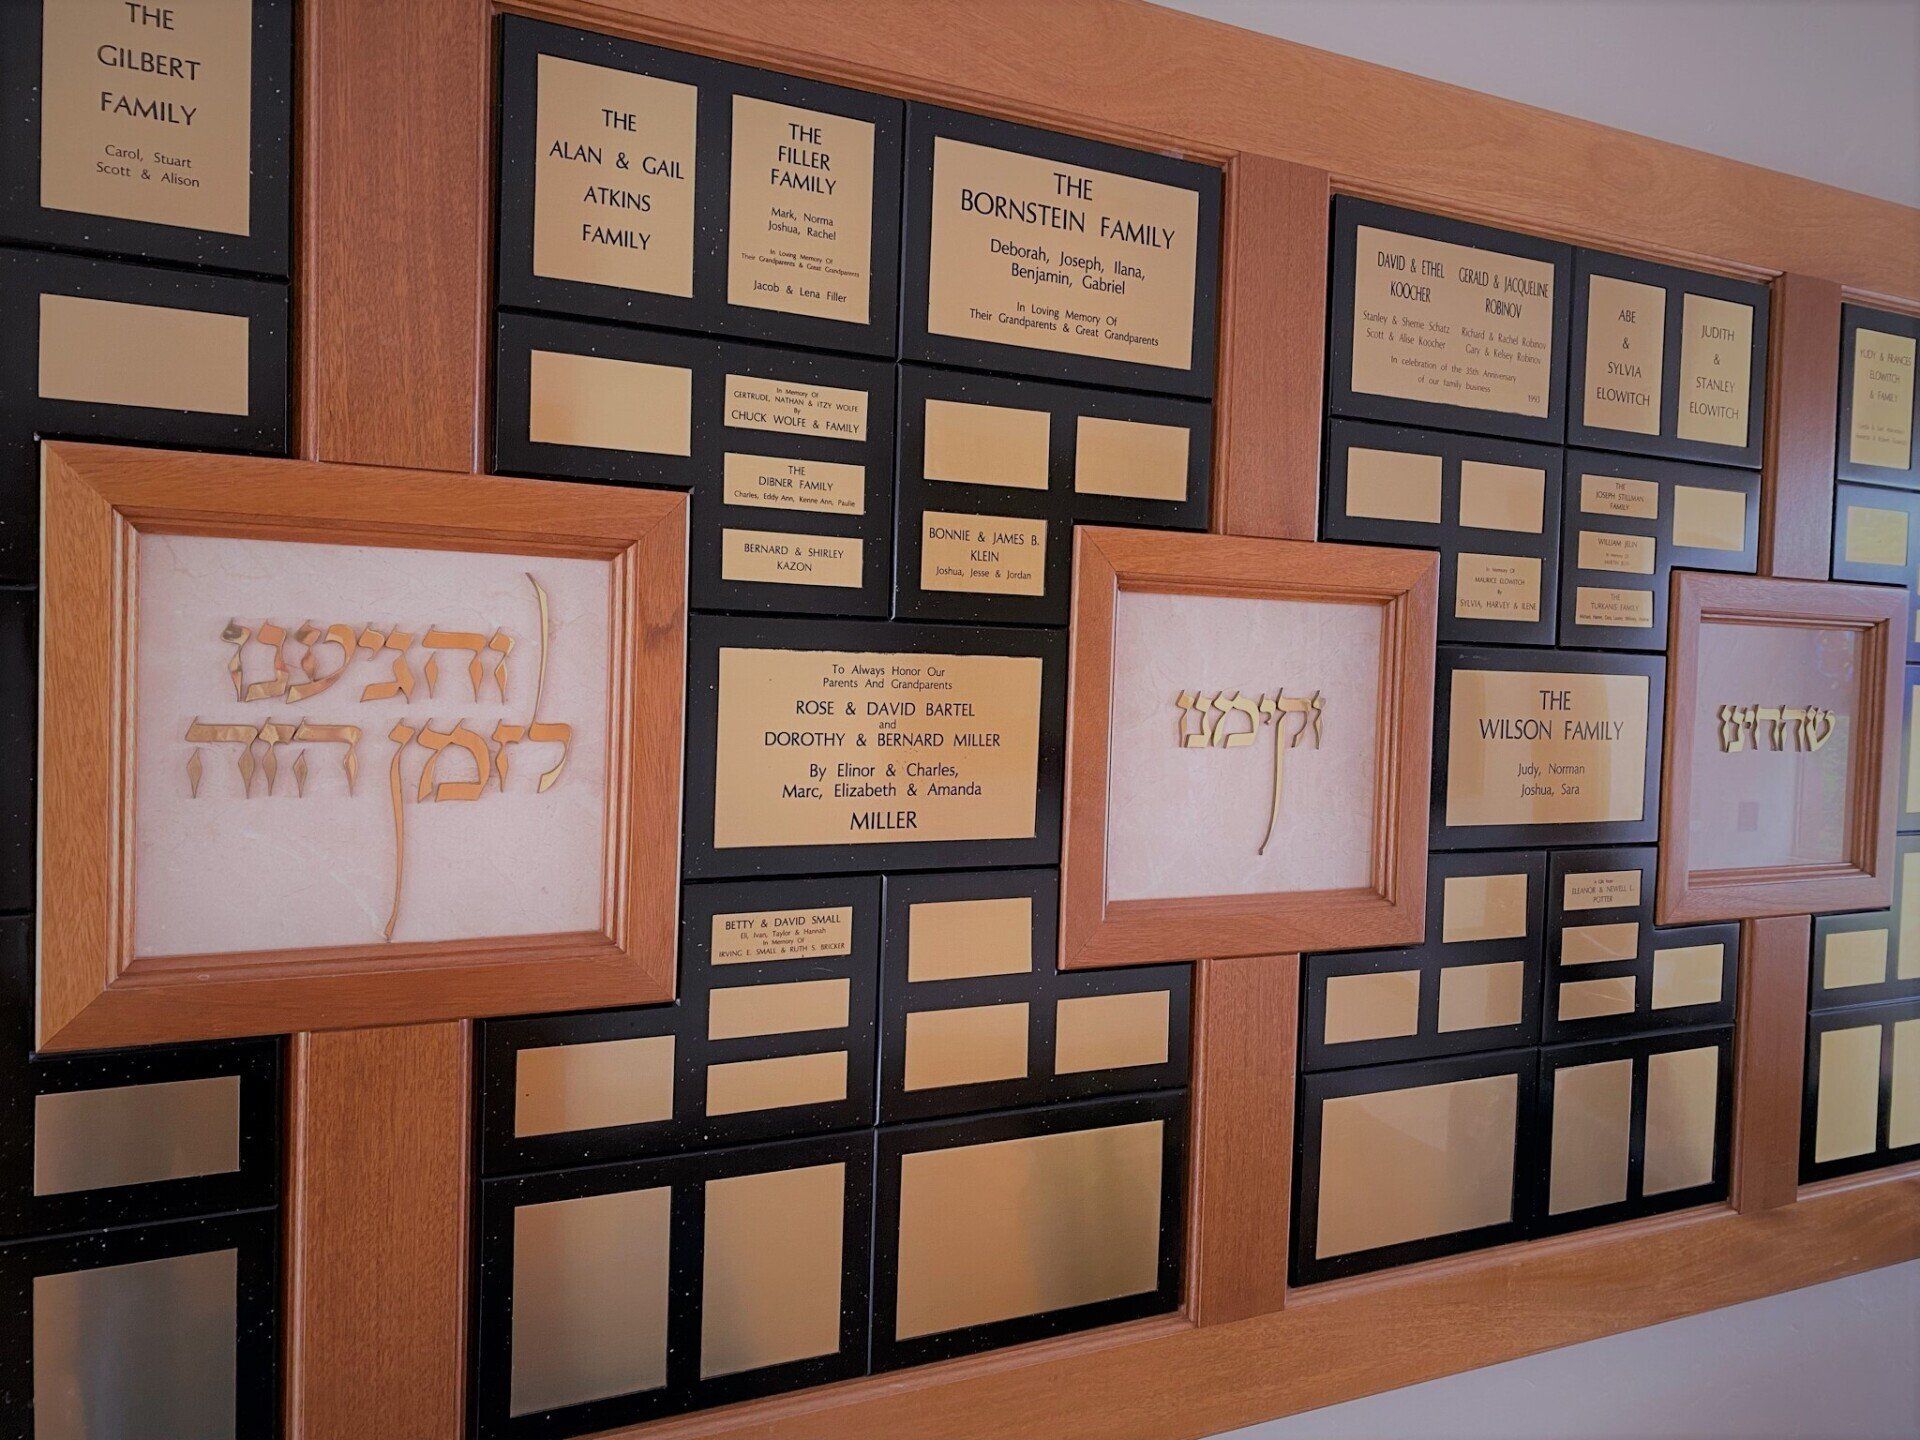 THE
GILBERT
FAMILY
Carol, Stuart
Scott & Alison
THE
ALAN & GAIL
ATKINS
FAMILY
THE
FILLER
FAMILY
Mark, Norma
Joshua, Rachel
In Loving Memory Of
Their Grandparents & Great Grandparents
Jacob & Lena Filler
THE
BORNSTEIN FAMILY
Deborah, Joseph, Ilana,
Benjamin, Gabriel
In Loving Memory Of
Their Grandparents & Great Grandparents
In Memory Of
GERTRUDE, NATHAN & ITZY WOLFE
By
CHUCK WOLFE & FAMILY
THE
DIBNER FAMILY
Charles, Eddy Ann, Kenne Ann, Paulie
BERNARD & SHIRLEY
KAZON
BONNIE & JAMES B.
KLEIN
Joshua, Jesse & Jordan
והגיענו
לזמן הזה
To Always Honor Our
Parents And Grandparents
ROSE & DAVID BARTEL
and
DOROTHY & BERNARD MILLER
By Elinor & Charles,
Marc, Elizabeth & Amanda
MILLER
BETTY & DAVID SMALL
Eli, Ivan, Taylor & Hannah
In Memory Of
IRVING E. SMALL & RUTH S. BRICKER
וקימנו
DAVID & ETHEL
KOOCHER
Stanley & Sherrie Schatz
Scott & Alise Koocher
GERALD & JACQUELINE
ROBINOV
Richard & Rachel Robinov
Gary & Kelsey Robinov
In celebration of the 35th Anniversary
of our family business
1993
ABE
&
SYLVIA
ELOWITCH
JUDITH
&
STANLEY
ELOWITCH
In Memory Of
MAURICE ELOWITCH
By
SYLVIA, HARVEY & ILENE
THE
JOSEPH STILLMAN
FAMILY
WILLIAM JELIN
In Memory Of
THE
TURKANIS FAMILY
THE
WILSON FAMILY
Judy, Norman
Joshua, Sara
שהחינו
ELEANOR & NEWELL L.
POTTER
YUDY & FRANCES
ELOWITCH
& FAMILY